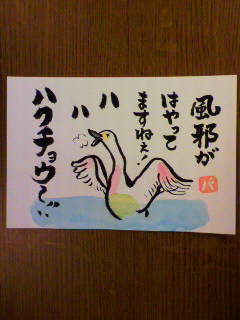 風邪が
はやって
ますねぇ!
ハ
ハ
ハクチョウ~!!